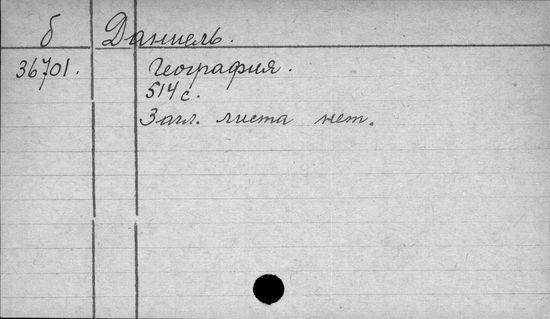 б Даниель.
36701. География.
514 с.
Загл. листа нет.